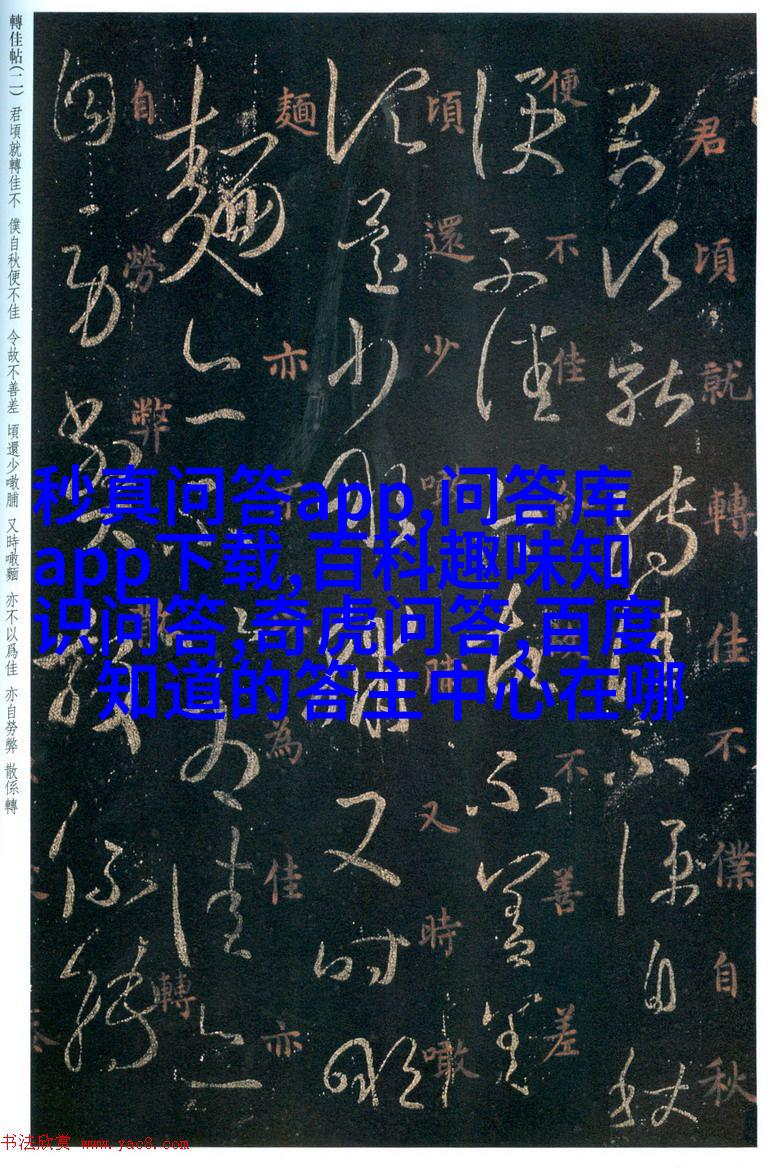 轉佳帖(二) 君頃就轉佳不 僕自秋便不佳 令故不善差 頃還少噉脯 又時噉麵 亦不以爲佳 亦自勞弊 散係轉
君頃就轉佳不僕自秋
便不佳 不善差
頃還少噉 又時噉
麵亦不 為佳亦
自勞弊 轉
秒真问答app,问答库
app下载,百科趣味知
识问答,奇虎问答,百度
知道的答主中心在哪
书法欣赏 www.yac8.com